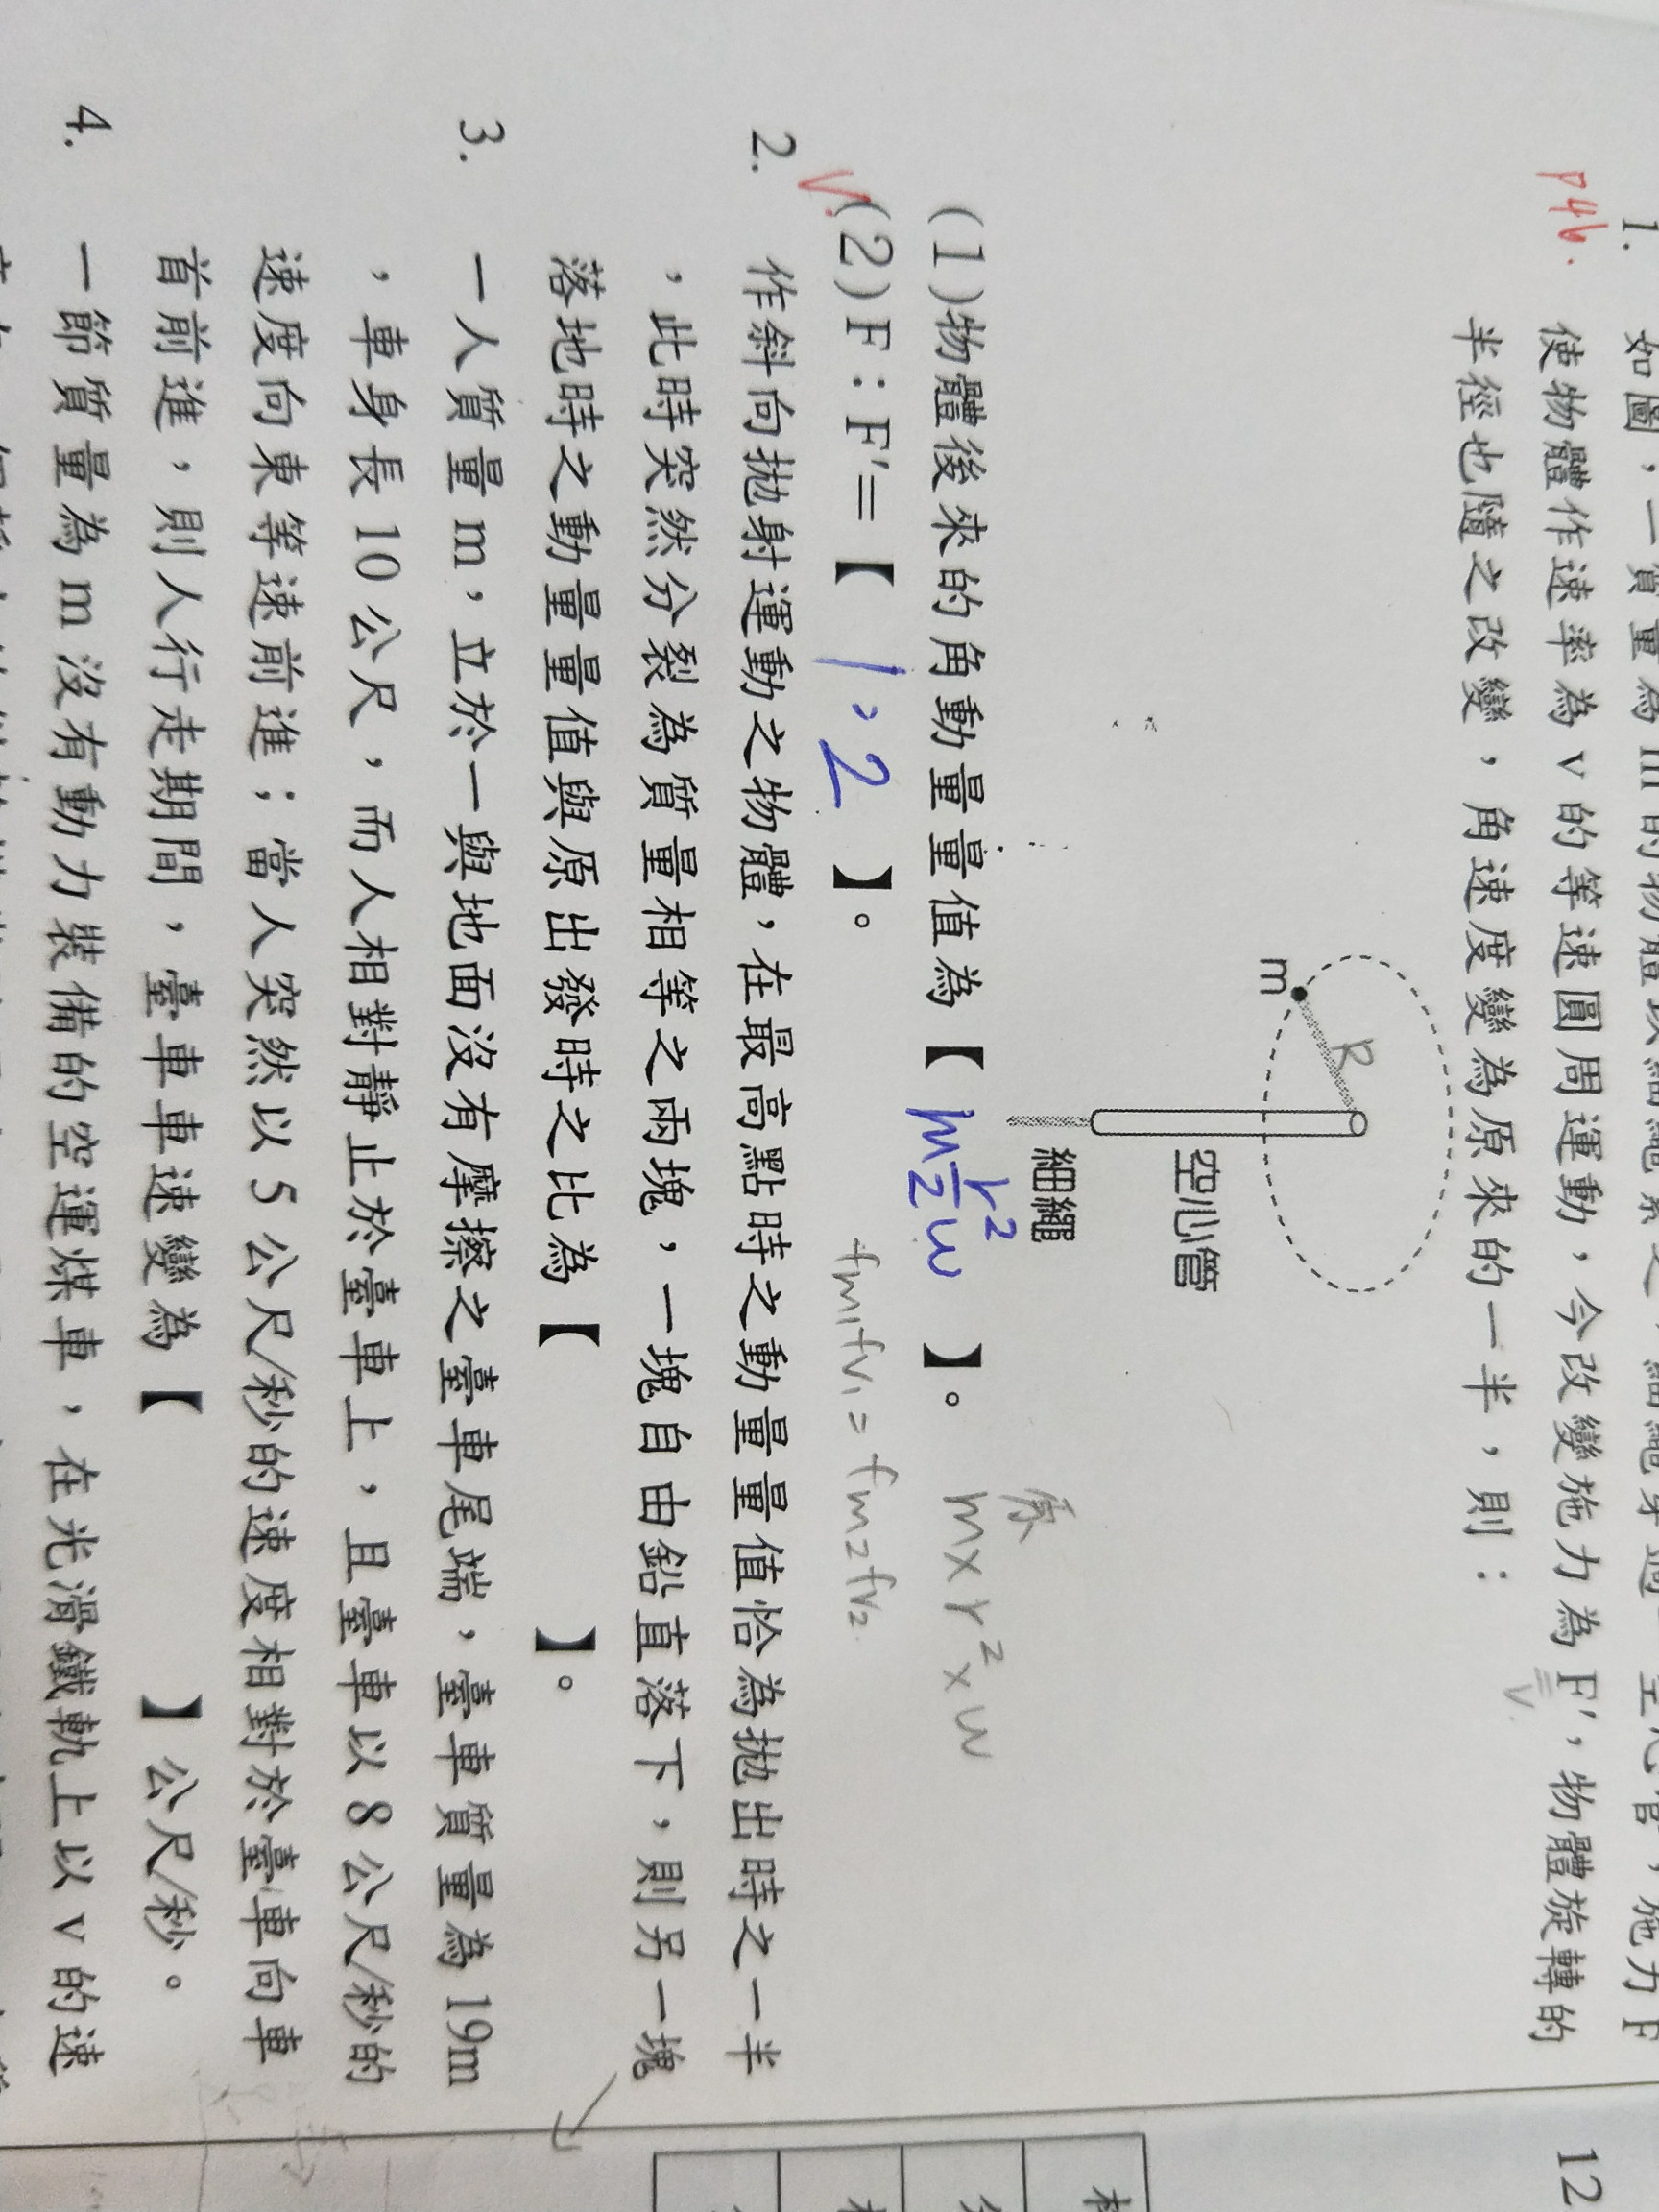 1. 如圖，一質量為m的物體以細繩繫之，細繩穿過一空心管，施力F
P46.
使物體作速率為v的等速圓周運動，今改變施力為F'，物體旋轉的
V.
半徑也隨之改變，角速度變為原來的一半，則：
R
m
空心管
細繩
(1)物體後來的角動量量值為【 m r²/2 w 】。
原 m×r²×w
(2)F：F'=【 1:2 】。
fm₁fv₁=fm₂fv₂.
2. 作斜向拋射運動之物體，在最高點時之動量量值恰為拋出時之一半
，此時突然分裂為質量相等之兩塊，一塊自由鉛直落下，則另一塊
落地時之動量量值與原出發時之比為【 】。
3. 一人質量m，立於一與地面沒有摩擦之臺車尾端，臺車質量為19m
，車身長10公尺，而人相對靜止於臺車上，且臺車以8公尺/秒的
速度向東等速前進；當人突然以5公尺/秒的速度相對於臺車向車
首前進，則人行走期間，臺車車速變為【 】公尺/秒。
4. 一節質量為m沒有動力裝備的空運煤車，在光滑鐵軌上以v的速
12